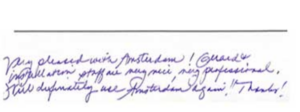 Very pleased with Amsterdam! Gerard &
installation staff are very nice, very professional.
Will definitely use Amsterdam again!! Thanks!